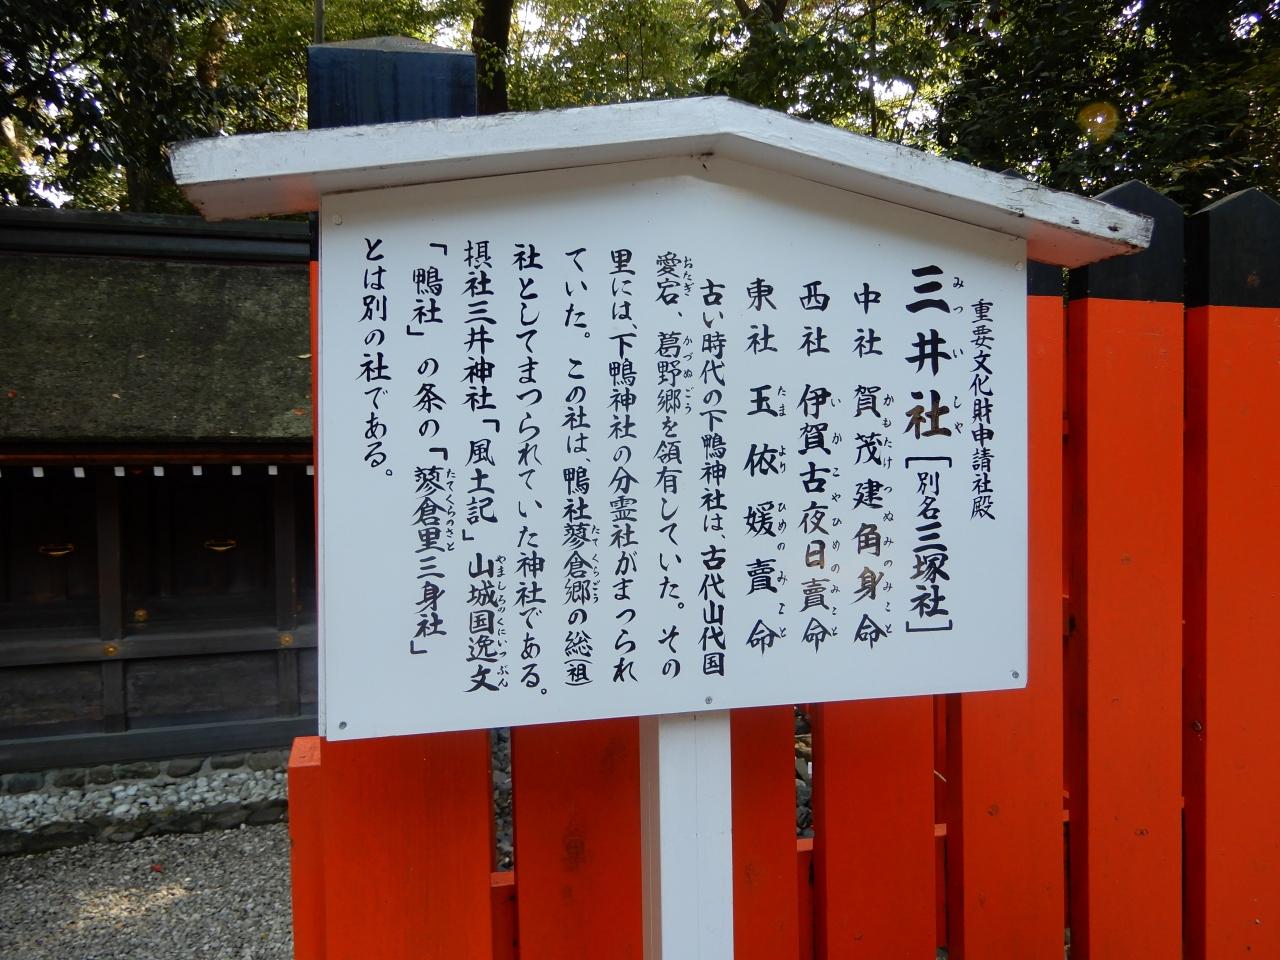 重要文化財申請社殿
三井社［別名三塚社］
みついしや
中社 賀茂建角身命
かもたけつぬみのみこと
西社 伊賀古夜日賣命
いかこやひめのみこと
東社 玉依媛賣命
たまよりひめのみこと
古い時代の下鴨神社は、古代山代国
愛宕、葛野郷を領有していた。その
おたぎ かづぬごう
里には、下鴨神社の分霊社がまつられ
ていた。この社は、鴨社蓼倉郷の総(祖)
たてくらごう
社としてまつられていた神社である。
摂社三井神社「風土記」山城国逸文
やましろのくにいつぶん
「鴨社」の条の「蓼倉里三身社」
たてくらのさと
とは別の社である。